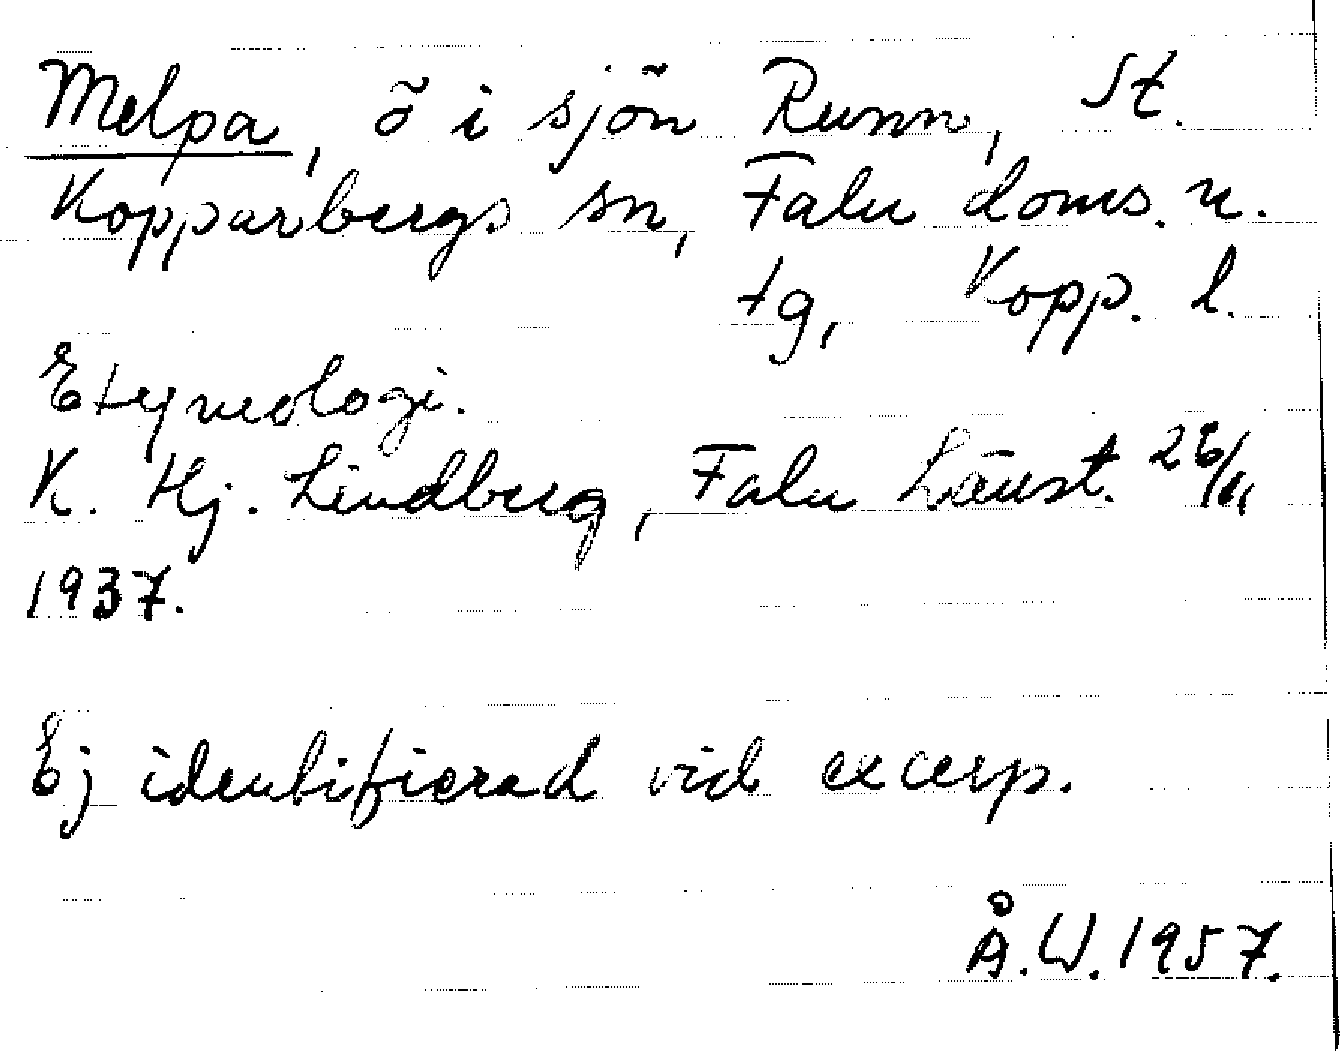 Melpa, ö i sjön Runn, St.
Kopparbergs sn, Falu doms. o.
tg, Kopp. l.
Etymologi.
K. Hj. Lindberg, Falu Länst. 26/11
1937.
Ej identifierad vid excerp.
Å.W. 1957.